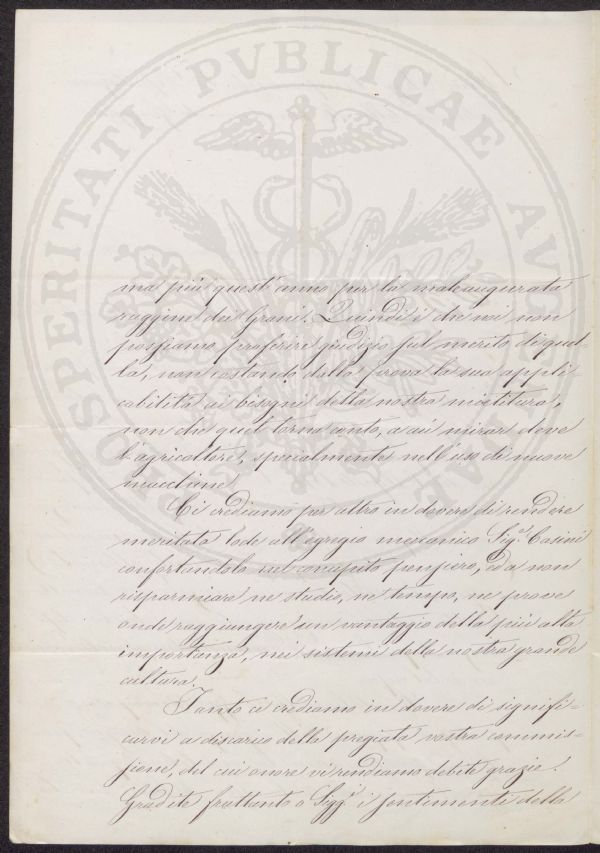 PROSPERITATI PVBLICAE AVGENDAE
ma più quest'anno per la malaugurata
ruggine dei grani. Quindi è che noi non
possiamo proferire giudizio sul merito di quel-
la, non costando dalla prova la sua appli-
cabilità ai bisogni della nostra mietitura,
non che quel torna conto, a cui mirar deve
l'agricoltore, specialmente nell'uso di nuove
macchine.
Ci crediamo per altro in dovere di rendere
meritata lode all'egregio meccanico Sig.r Casini
confortandolo nel concepito pensiero, ed a non
risparmiare ne studio, ne tempo, ne prove
onde raggiungere un vantaggio della più alta
importanza, nei sistemi della nostra grande
cultura.
Tanto ci crediamo in dovere di signifi-
carvi a discarico della pregiata vostra commis-
sione, del cui onore vi rendiamo debite grazie.
Gradite frattanto o Sigg.ri i sentimenti della